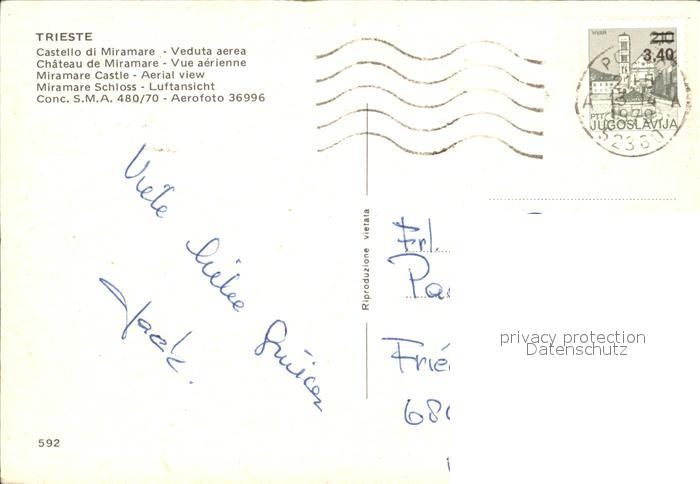 TRIESTE
Castello di Miramare - Veduta aerea
Château de Miramare - Vue aérienne
Miramare Castle - Aerial view
Miramare Schloss - Luftansicht
Conc. S.M.A. 480/70 - Aerofoto 36996
HVAR
2,10
3,40
PTT
JUGOSLAVIJA
A A
1979
52360
Riproduzione vietata
Viele liebe
Grüsse
Jack.
Frl.
Pa
Frie
680
privacy protection
Datenschutz
592